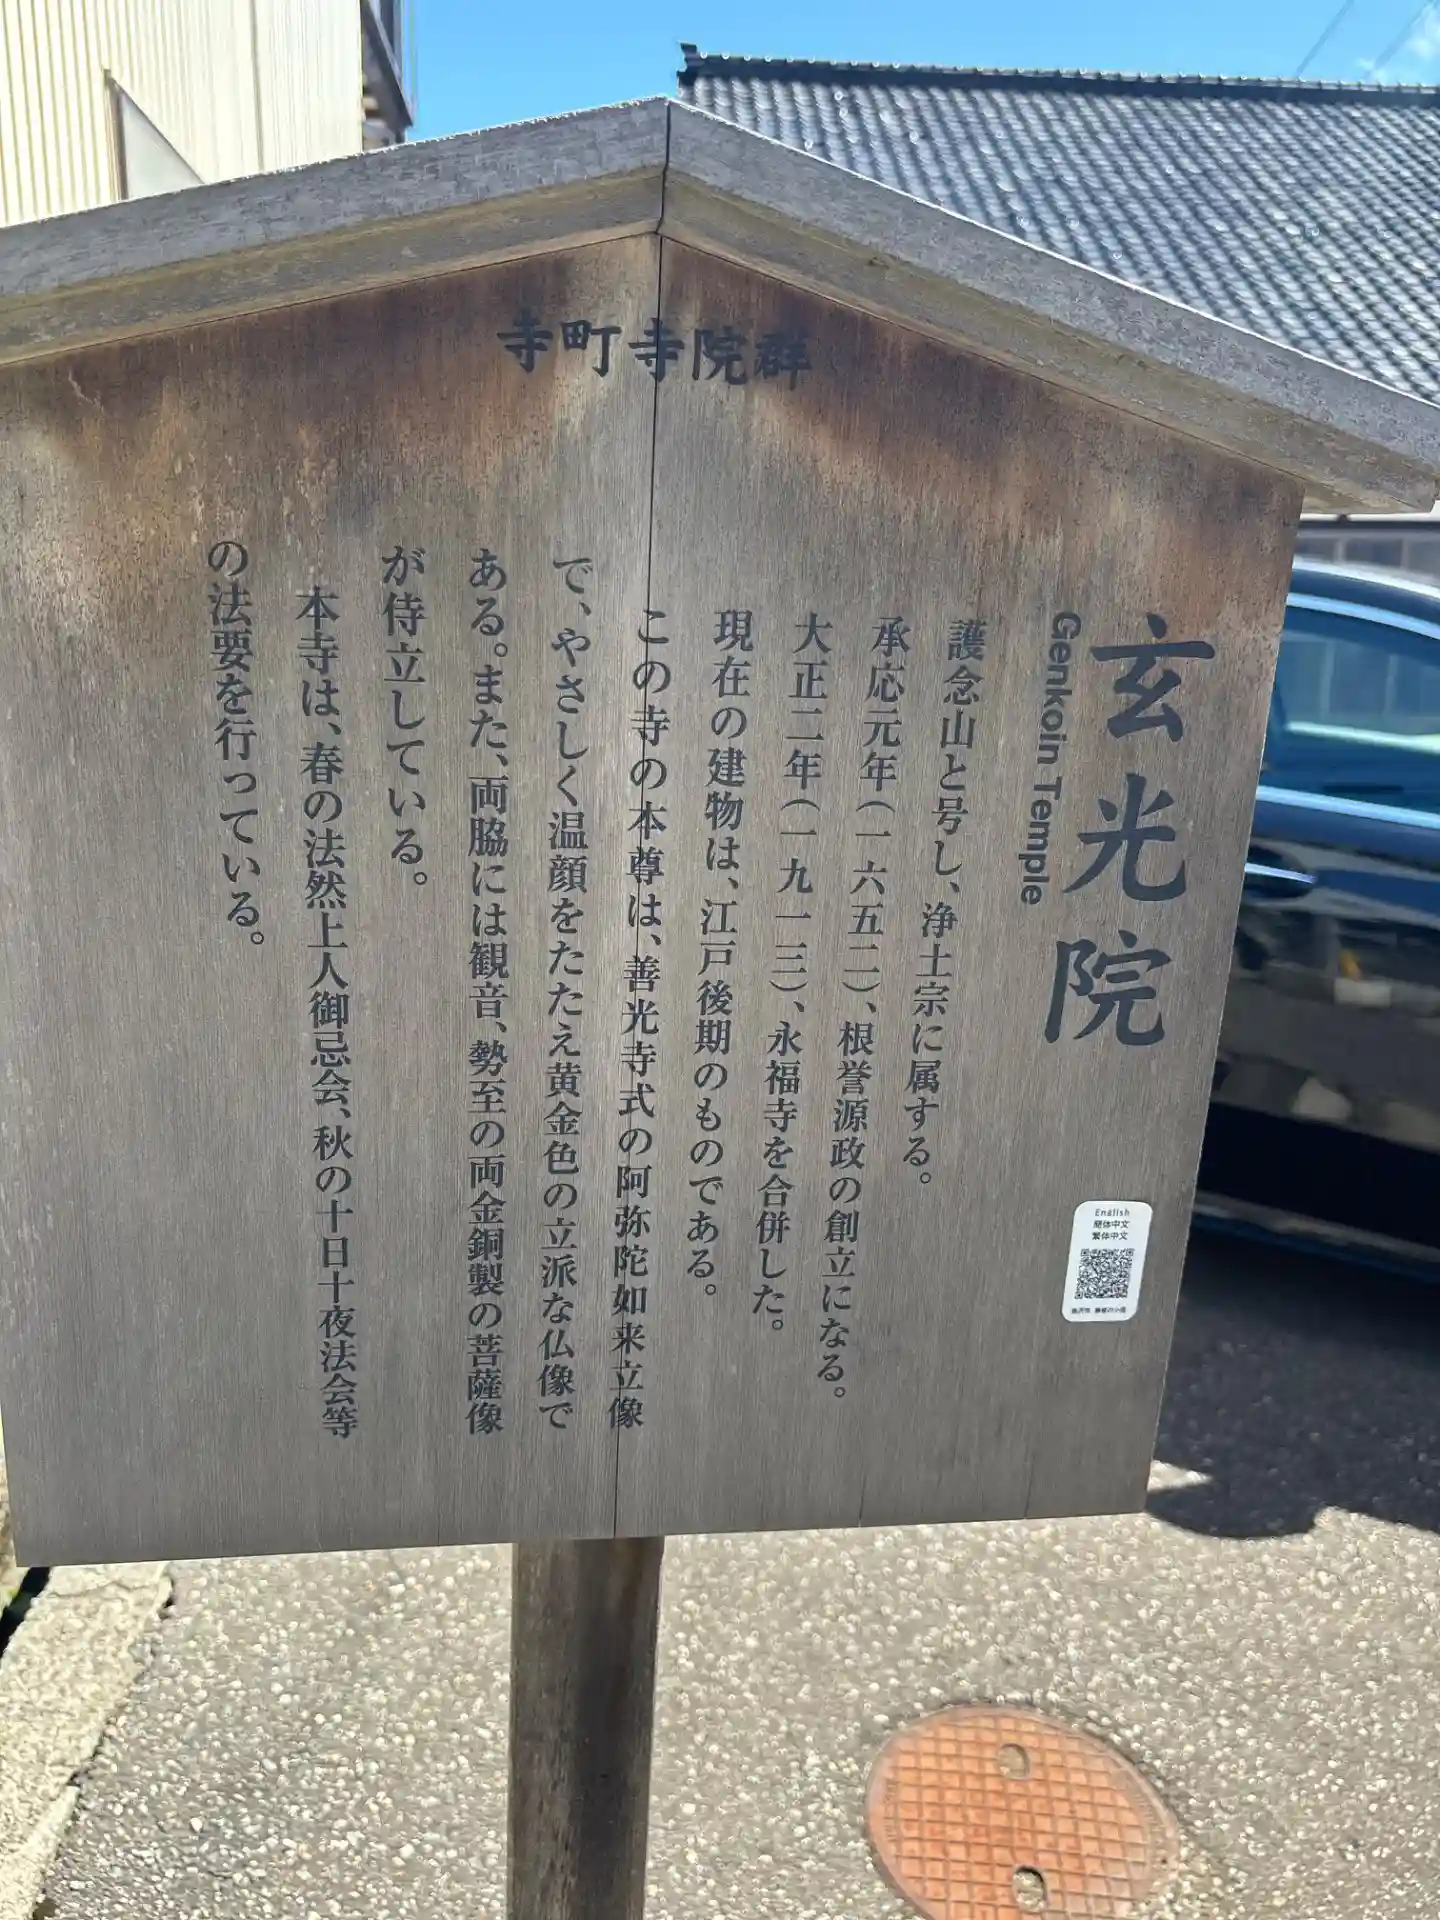 寺町寺院群
玄光院
Genkoin Temple
護念山と号し、浄土宗に属する。
承応元年(一六五二)、根誉源政の創立になる。
大正二年(一九一三)、永福寺を合併した。
現在の建物は、江戸後期のものである。
この寺の本尊は、善光寺式の阿弥陀如来立像
で、やさしく温顔をたたえ黄金色の立派な仏像で
ある。また、両脇には観音、勢至の両金銅製の菩薩像
が侍立している。
本寺は、春の法然上人御忌会、秋の十日十夜法会等
の法要を行っている。
English
簡体中文
繁体中文